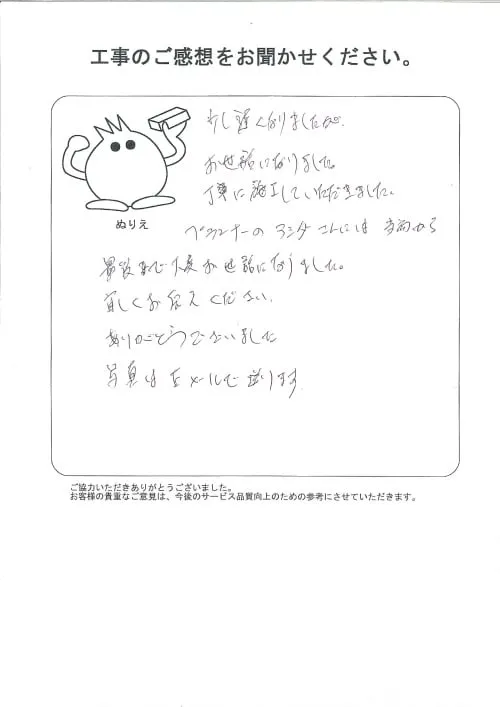 工事のご感想をお聞かせください。
少し遅くなりましたが、
お世話になりました。
丁寧に施工していただきました。
ぬりえ
プランナーの さんには
最後まで大変お世話になりました。
宜しくお伝えください。
ありがとうございました
写真はEメールで送ります
ご協力いただきありがとうございました。
お客様の貴重なご意見は、今後のサービス品質向上のための参考にさせていただきます。